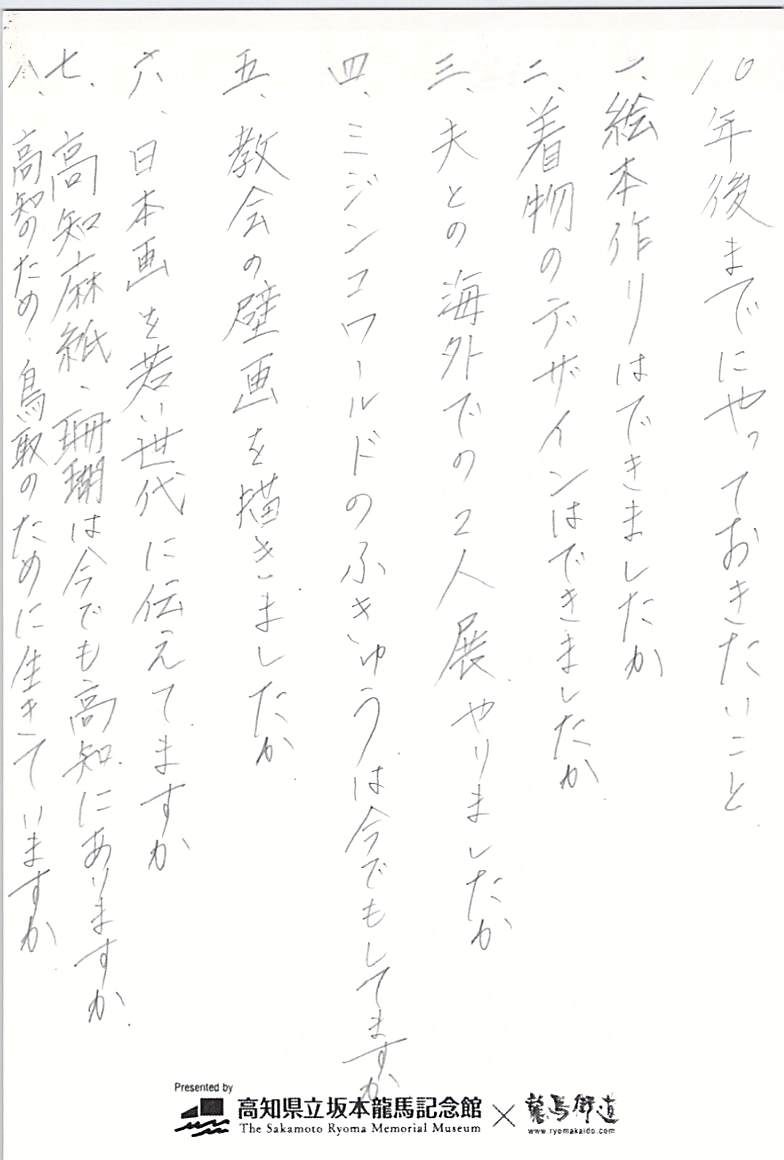 10年後までにやっておきたいこと
一、絵本作りはできましたか
二、着物のデザインはできましたか
三、夫との海外での2人展やりましたか
四、ミジンコワールドのふきゅうは今でもしてますか
五、教会の壁画を描きましたか
六、日本画を若い世代に伝えてますか
七、高知麻紙、珊瑚は今でも高知にありますか
八、高知のため、鳥取のために生きていますか
Presented by
高知県立坂本龍馬記念館
The Sakamoto Ryoma Memorial Museum
×
龍馬街道
www.ryomakaido.com